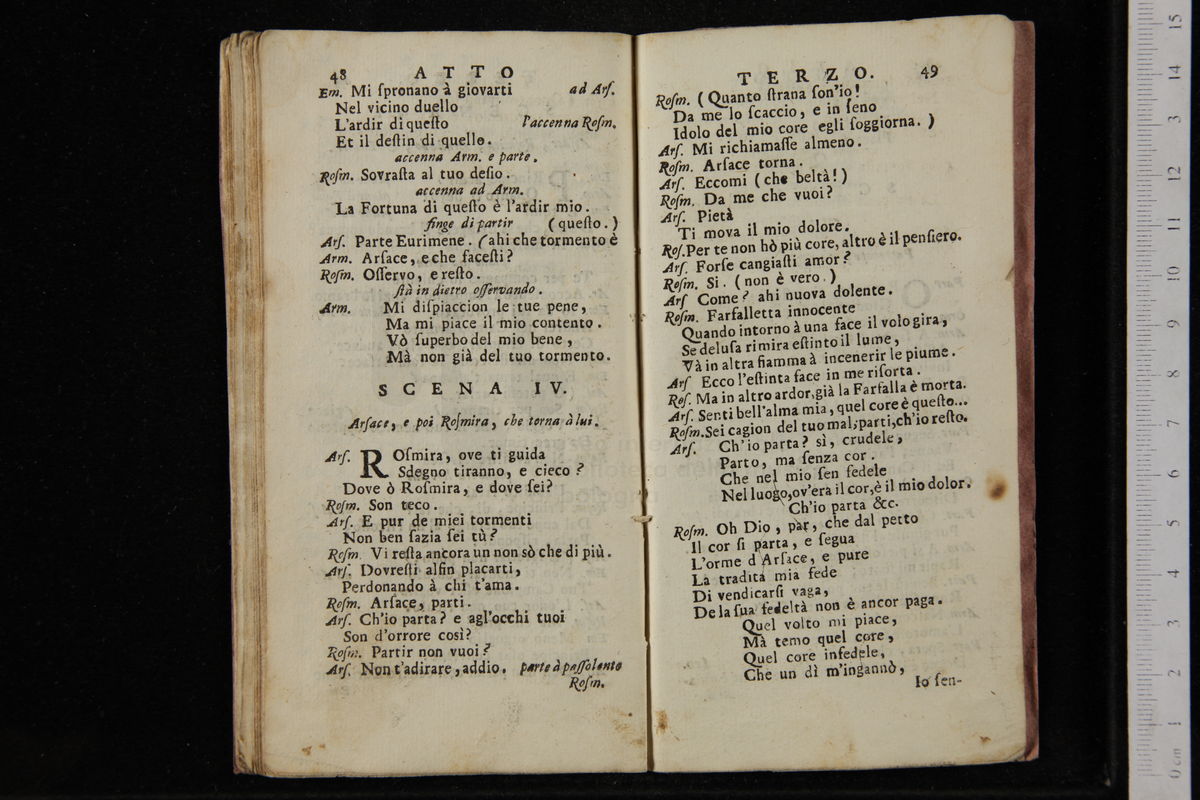 48 ATTO
Em. Mi ſpronano à giovarti ad Arſ.
Nel vicino duello
L'ardir di queſto l'accenna Roſm.
Et il deſtin di quello.
accenna Arm. e parte.
Roſm. Sovraſta al tuo deſio.
accenna ad Arm.
La Fortuna di queſto è l'ardir mio.
finge di partir (queſto.)
Arſ. Parte Eurimene. (ahi che tormento è
Arm. Arſace, e che faceſti?
Roſm. Oſſervo, e reſto.
ſtà in dietro oſſervando.
Arm. Mi diſpiaccion le tue pene,
Ma mi piace il mio contento.
Vò ſuperbo del mio bene,
Mà non già del tuo tormento.
SCENA IV.
Arſace, e poi Roſmira, che torna à lui.
Arſ. ROſmira, ove ti guida
Sdegno tiranno, e cieco?
Dove ò Roſmira, e dove ſei?
Roſm. Son teco.
Arſ. E pur de miei tormenti
Non ben ſazia ſei tù?
Roſm. Vi reſta ancora un non sò che di più.
Arſ. Dovreſti alfin placarti,
Perdonando à chi t'ama.
Roſm. Arſace, parti.
Arſ. Ch'io parta? e agl'occhi tuoi
Son d'orrore così?
Roſm. Partir non vuoi?
Arſ. Non t'adirare, addio. parte à paſſo lento
Roſm.
TERZO. 49
Roſm. (Quanto ſtrana ſon'io!
Da me lo ſcaccio, e in ſeno
Idolo del mio core egli ſoggiorna.)
Arſ. Mi richiamaſſe almeno.
Roſm. Arſace torna.
Arſ. Eccomi (che beltà!)
Roſm. Da me che vuoi?
Arſ. Pietà
Ti mova il mio dolore.
Roſ. Per te non hò più core, altro è il penſiero.
Arſ. Forſe cangiaſti amor?
Roſm. Si. (non è vero.)
Arſ Come? ahi nuova dolente.
Roſm. Farfalletta innocente
Quando intorno à una face il volo gira,
Se deluſa rimira eſtinto il lume,
Và in altra fiamma à incenerir le piume.
Arſ Ecco l'eſtinta face in me riſorta.
Roſ. Ma in altro ardor, già la Farfalla è morta.
Arſ. Senti bell'alma mia, quel core è queſto...
Roſm. Sei cagion del tuo mal; parti, ch'io reſto.
Arſ. Ch'io parta? sì, crudele,
Parto, ma ſenza cor.
Che nel mio ſen fedele
Nel luogo, ov'era il cor, è il mio dolor.
Ch'io parta &c.
Roſm. Oh Dio, par, che dal petto
Il cor ſi parta, e ſegua
L'orme d'Arſace, e pure
La tradita mia fede
Di vendicarſi vaga,
De la ſua fedeltà non è ancor paga.
Quel volto mi piace,
Mà temo quel core,
Quel core infedele,
Che un dì m'ingannò,
Io ſen-